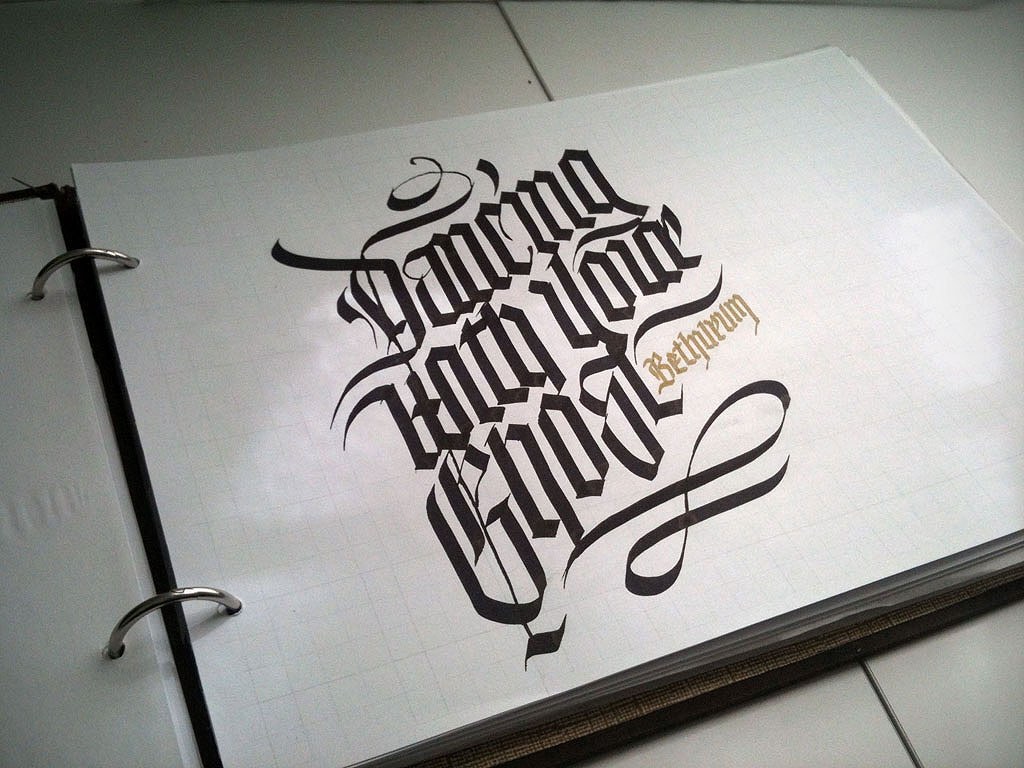 Dancing
With Your
Ghost
Bethurum